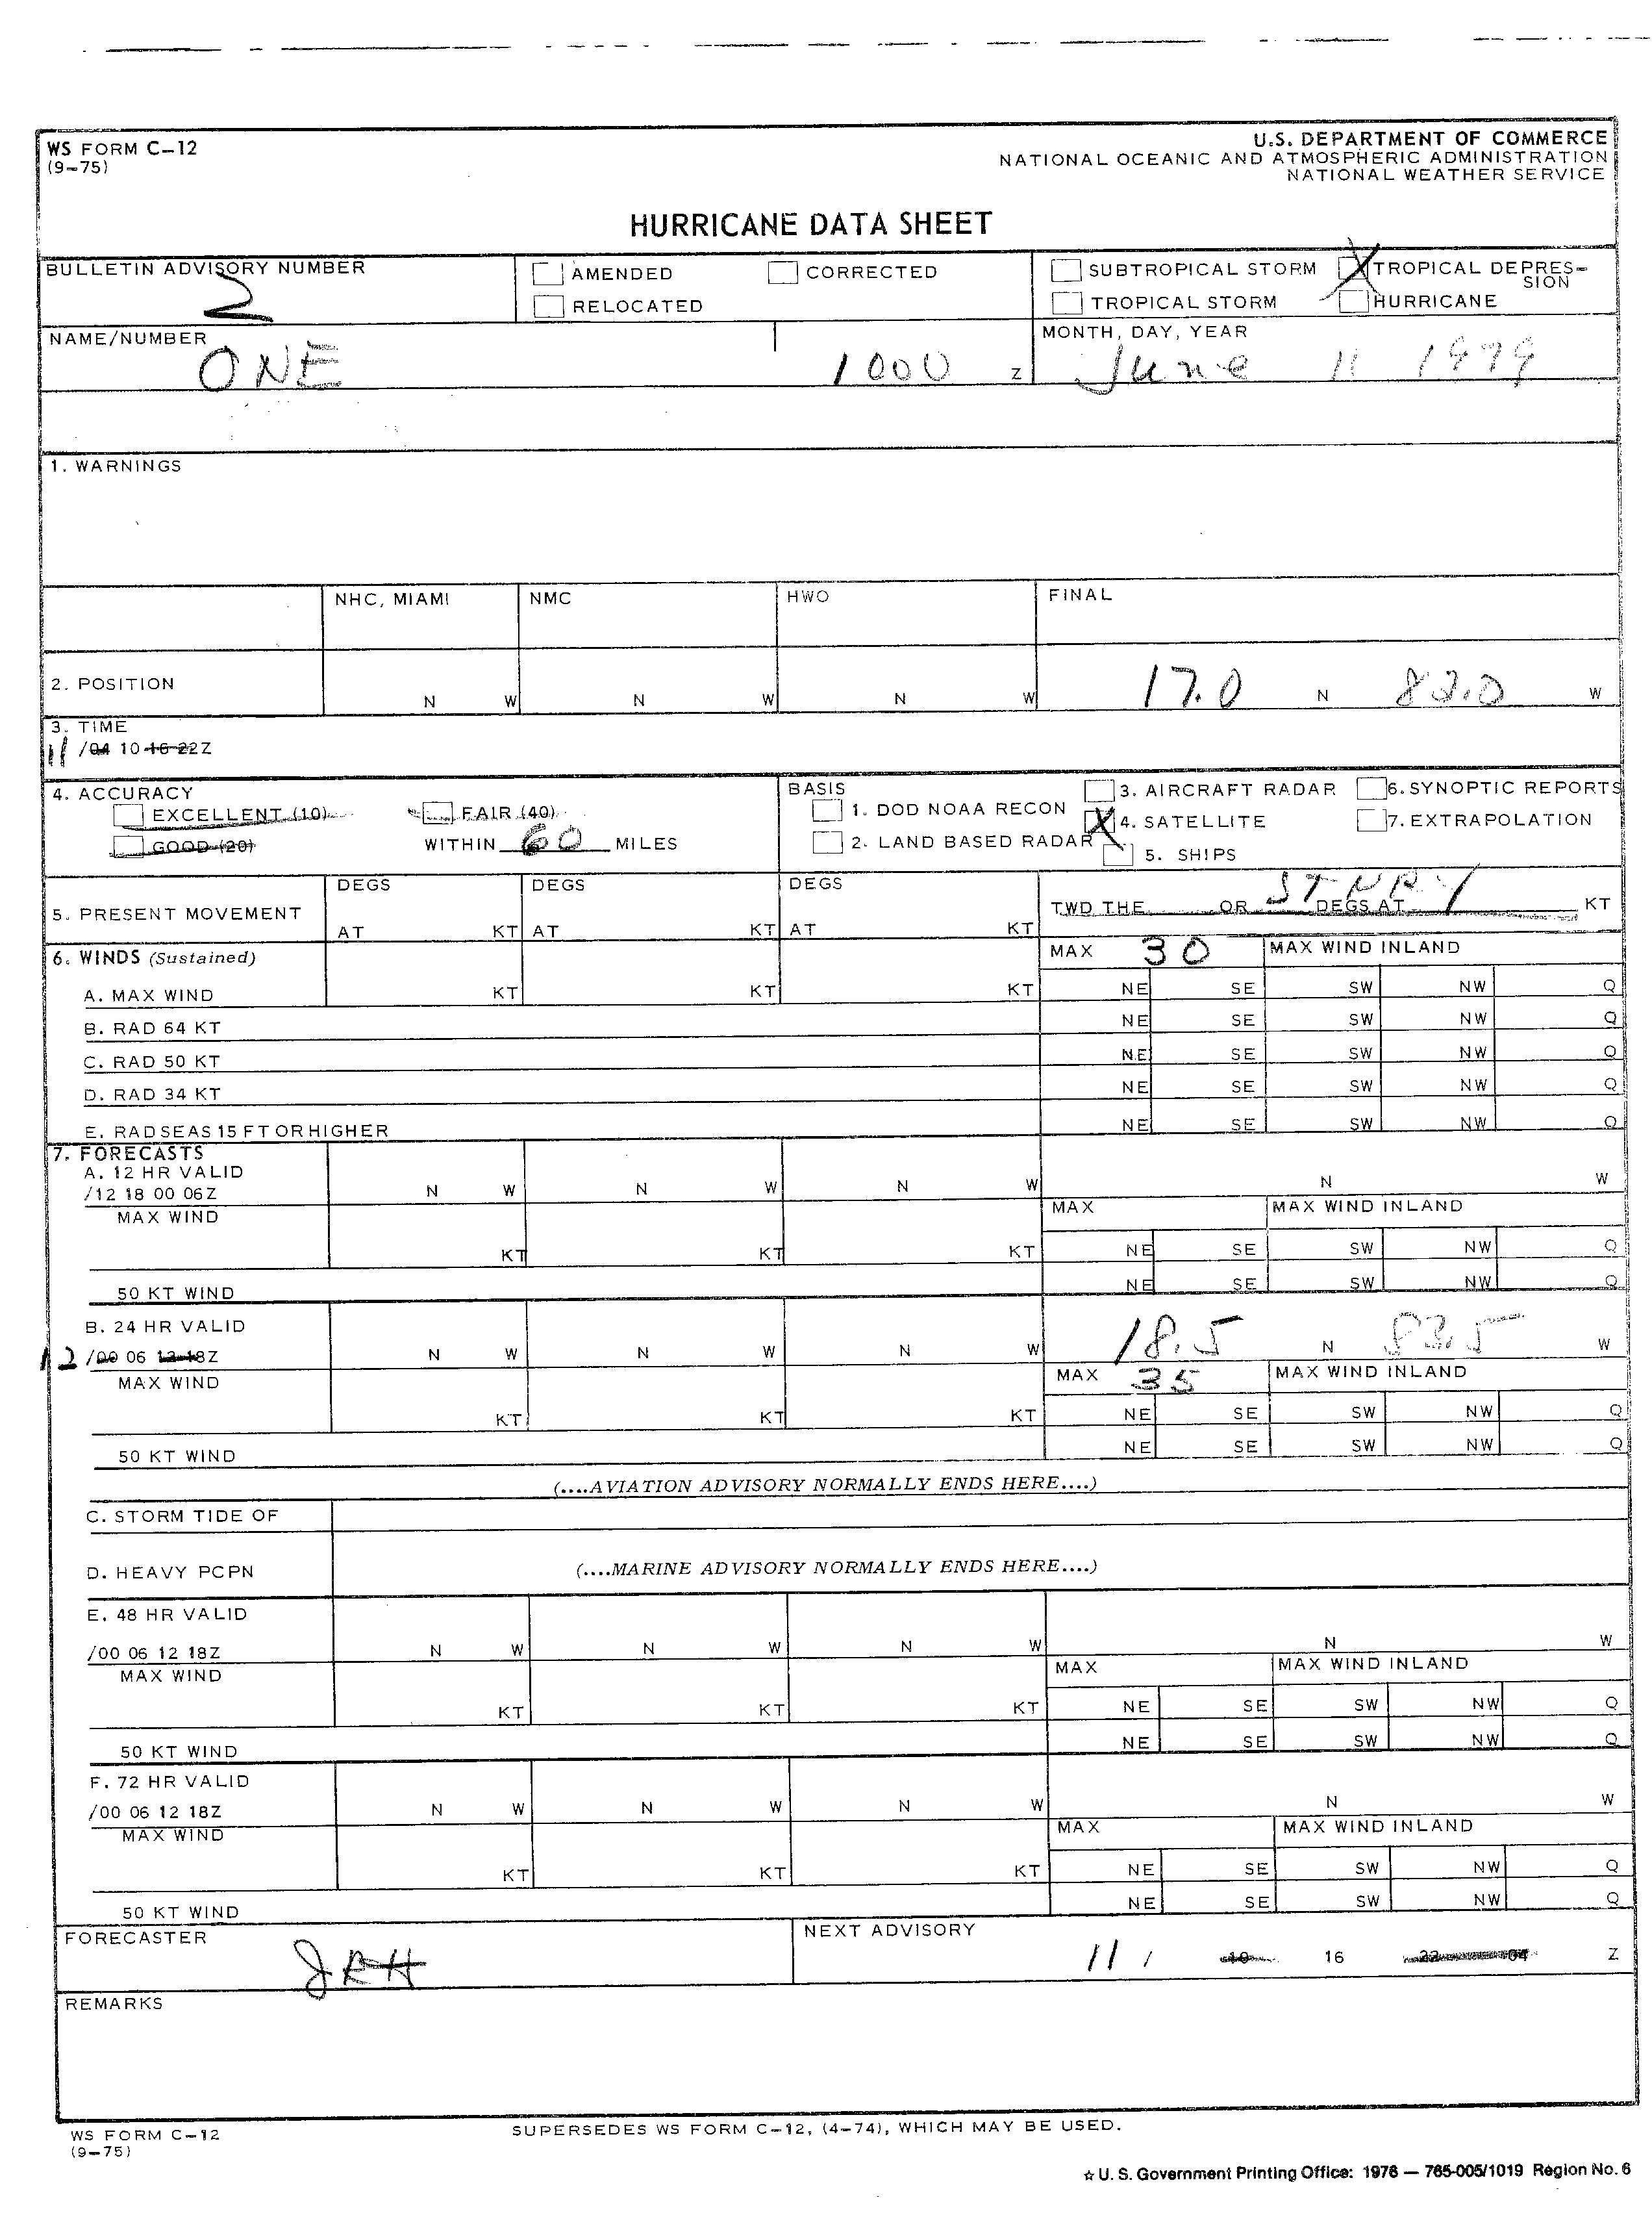 WS FORM C-12
(9-75)
U.S. DEPARTMENT OF COMMERCE
NATIONAL OCEANIC AND ATMOSPHERIC ADMINISTRATION
NATIONAL WEATHER SERVICE
HURRICANE DATA SHEET
BULLETIN ADVISORY NUMBER
2
AMENDED CORRECTED
RELOCATED
SUBTROPICAL STORM X TROPICAL DEPRES-
SION
TROPICAL STORM HURRICANE
NAME/NUMBER
ONE
1000 Z
MONTH, DAY, YEAR
June 11 1979
1. WARNINGS
NHC, MIAMI NMC HWO FINAL
2. POSITION N W N W N W 17.0 N 83.0 W
3. TIME
11 /04 10 16 22Z
4. ACCURACY
EXCELLENT (10) FAIR (40)
GOOD (20) WITHIN 60 MILES
BASIS
1. DOD NOAA RECON
2. LAND BASED RADAR
3. AIRCRAFT RADAR
X 4. SATELLITE
5. SHIPS
6. SYNOPTIC REPORTS
7. EXTRAPOLATION
5. PRESENT MOVEMENT
DEGS DEGS DEGS
AT KT AT KT AT KT
STNRY
TWD THE OR DEGS AT KT
6. WINDS (Sustained) MAX 30 MAX WIND INLAND
A. MAX WIND KT KT KT NE SE SW NW Q
B. RAD 64 KT NE SE SW NW Q
C. RAD 50 KT NE SE SW NW Q
D. RAD 34 KT NE SE SW NW Q
E. RAD SEAS 15 FT OR HIGHER NE SE SW NW Q
7. FORECASTS
A. 12 HR VALID
/12 18 00 06Z N W N W N W N W
MAX WIND MAX MAX WIND INLAND
KT KT KT NE SE SW NW Q
50 KT WIND NE SE SW NW Q
B. 24 HR VALID
12 /00 06 12 18Z N W N W N W 18.5 N 83.5 W
MAX WIND MAX 35 MAX WIND INLAND
KT KT KT NE SE SW NW Q
50 KT WIND NE SE SW NW Q
(....AVIATION ADVISORY NORMALLY ENDS HERE....)
C. STORM TIDE OF
D. HEAVY PCPN (....MARINE ADVISORY NORMALLY ENDS HERE....)
E. 48 HR VALID
/00 06 12 18Z N W N W N W N W
MAX WIND MAX MAX WIND INLAND
KT KT KT NE SE SW NW Q
50 KT WIND NE SE SW NW Q
F. 72 HR VALID
/00 06 12 18Z N W N W N W N W
MAX WIND MAX MAX WIND INLAND
KT KT KT NE SE SW NW Q
50 KT WIND NE SE SW NW Q
FORECASTER
JRH
NEXT ADVISORY
11 / 10 16 22 04 Z
REMARKS
WS FORM C-12
(9-75)
SUPERSEDES WS FORM C-12, (4-74), WHICH MAY BE USED.
☆ U. S. Government Printing Office: 1976 — 765-005/1019 Region No. 6